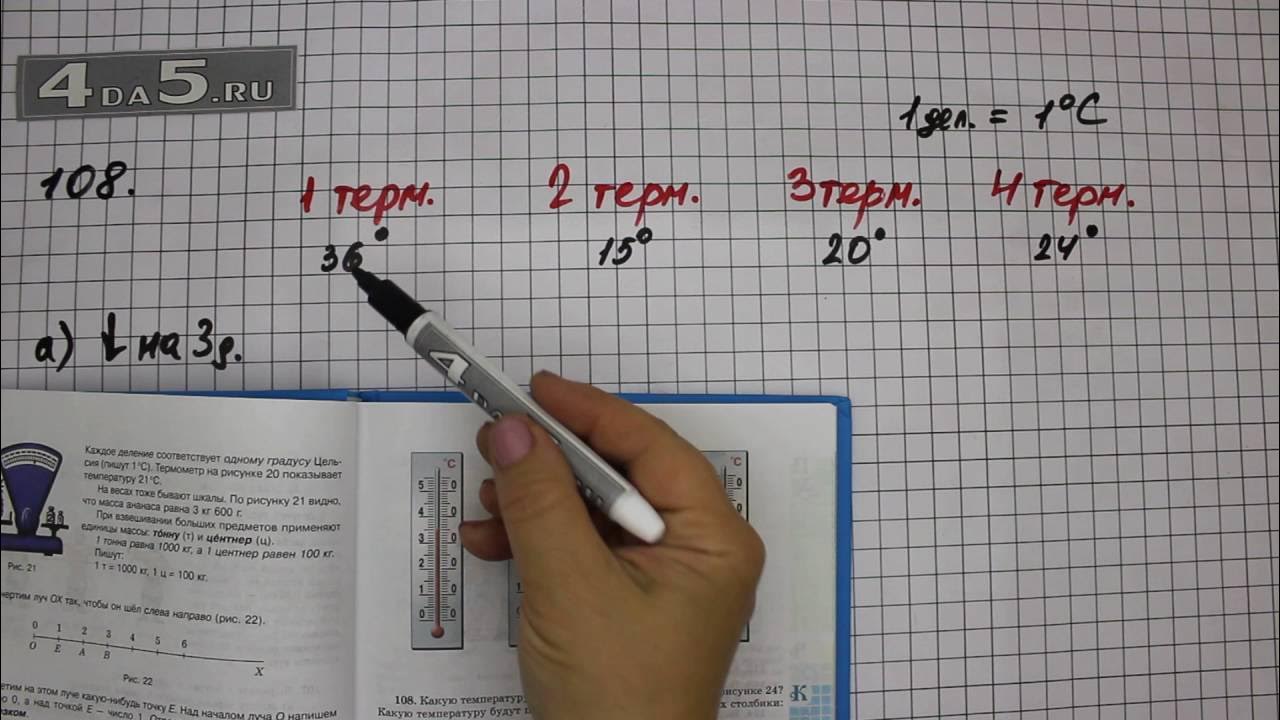 4DA5.RU
1 дел. = 1°C
108.
1 терм. 2 терм. 3 терм. 4 терм.
36° 15° 20° 24°
а) ↓ на 3 д.
Каждое деление соответствует одному градусу Цель-
сия (пишут 1 °С). Термометр на рисунке 20 показывает
температуру 21 °С.
На весах тоже бывают шкалы. По рисунку 21 видно,
что масса ананаса равна 3 кг 600 г.
При взвешивании больших предметов применяют
единицы массы: то́нну (т) и це́нтнер (ц).
1 тонна равна 1000 кг, а 1 центнер равен 100 кг.
Пишут:
1 т = 1000 кг, 1 ц = 100 кг.
Рис. 21
луч ОХ так, чтобы он шёл слева направо (рис. 22).
0 1 2 3 4 5 6
O E A B X
Рис. 22
на этом луче какую-нибудь точку Е. Над началом луча О напишем
0, а над точкой Е — число 1.
°C
5 0
4 0
3 0
2 0
1 0
0 0
°C
0
108. Какую температуру рисунке 24?
Какую температуру будут столбики:
К